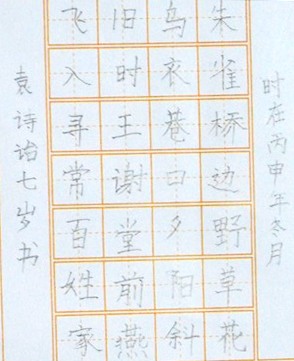 时在丙申年冬月
朱雀桥边野草花
乌衣巷口夕阳斜
旧时王谢堂前燕
飞入寻常百姓家
袁诗诒七岁书